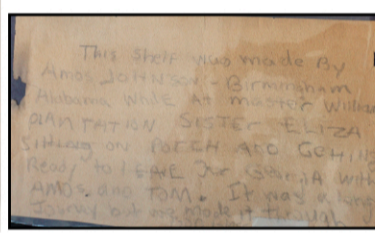 This Shelf was made By
Amos Johnson - Birmingham
Alabama while At master William
PLANTATION SISTER ELIZA
SITTING ON PORCH AND GETTING
Ready to LEAVE for GEORGIA with
AMOS. and TOM. It was a long
Journey but we made it through